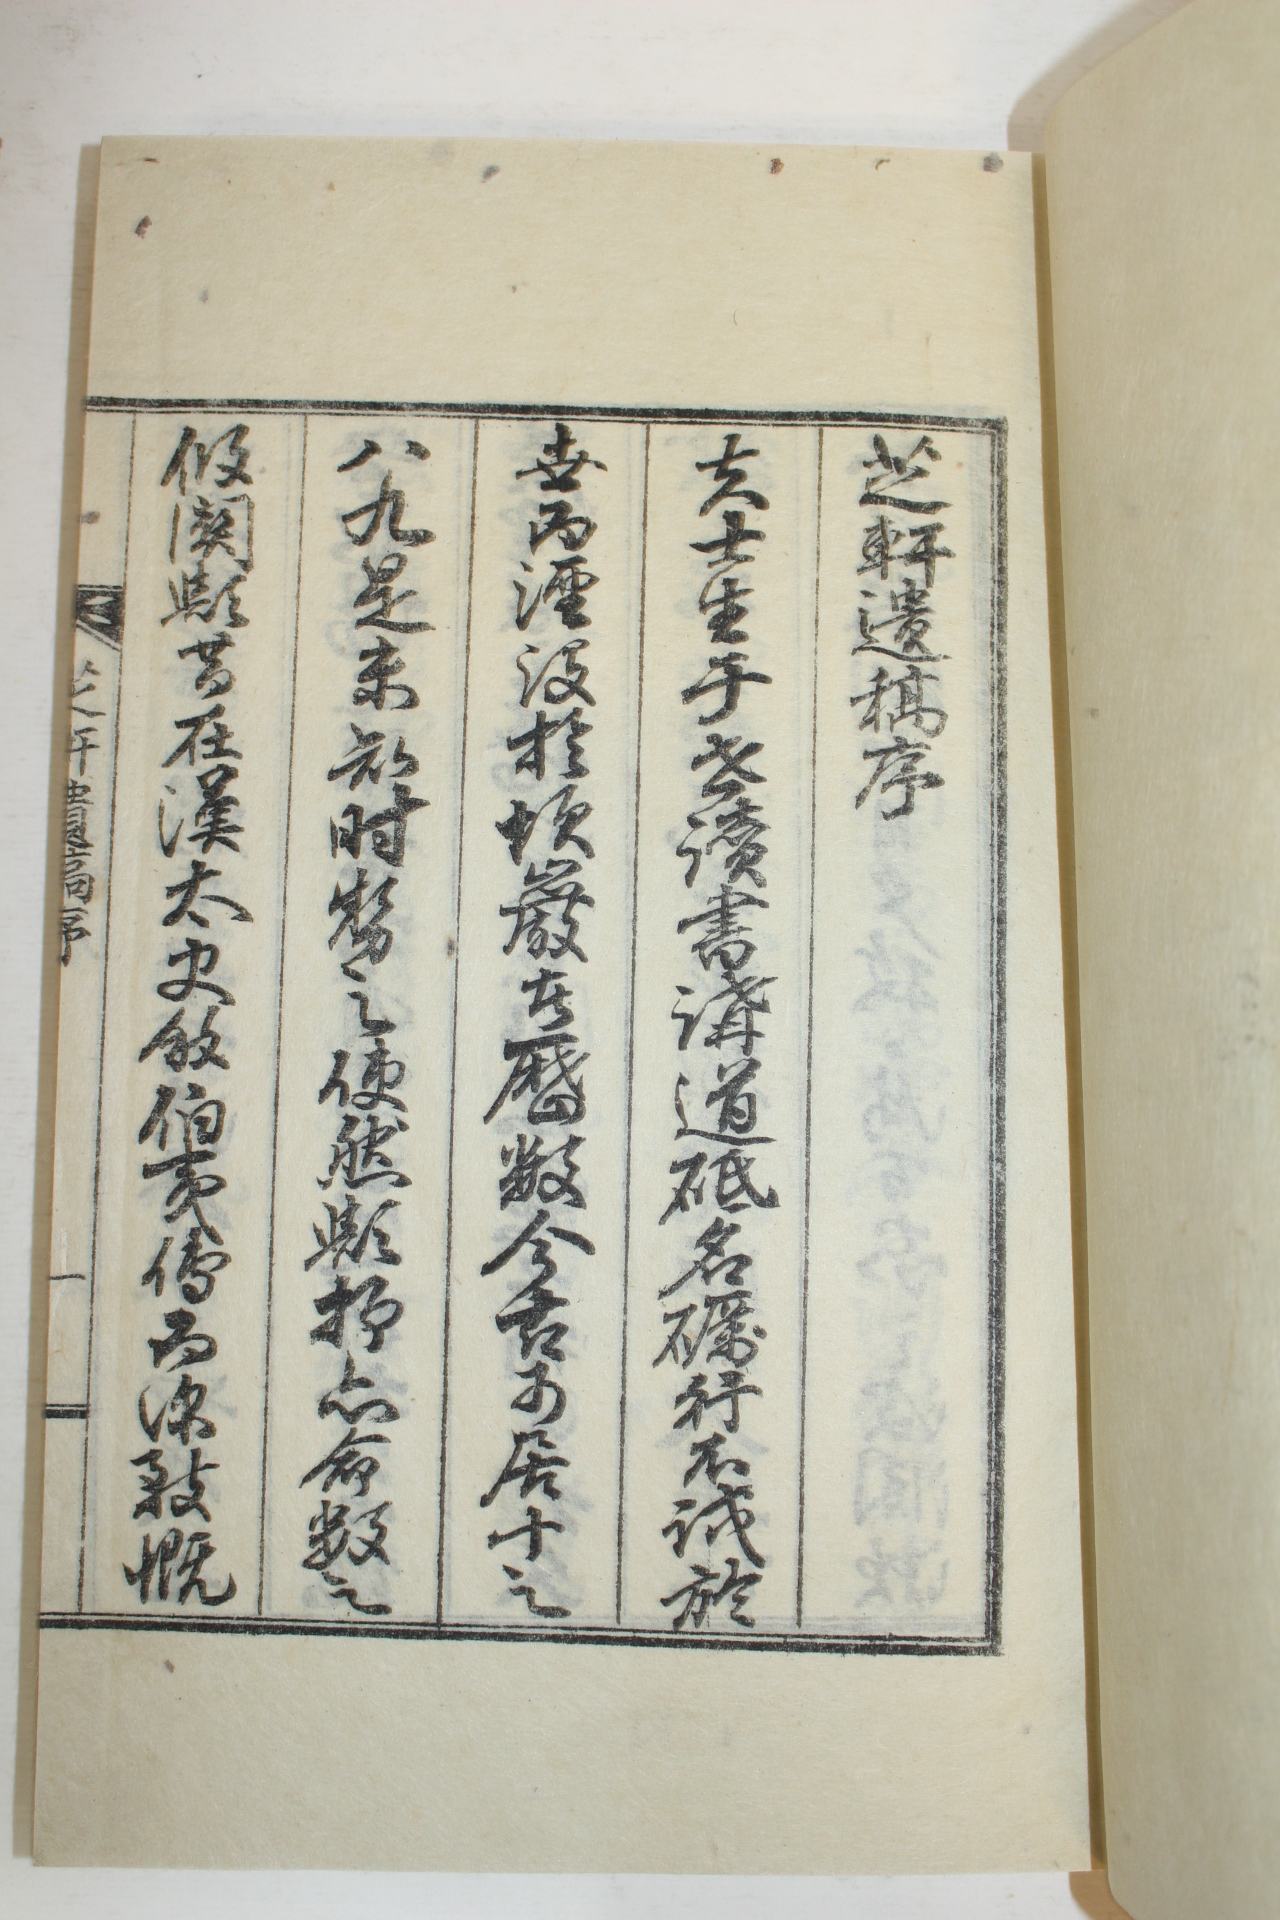 芝軒遺稿序
夫士生讀書講道砥名礪行不試於
世而湮没於巖者歷數今古可居十之
八九是未知時勢之使然歟抑亦命數之
攸關歟昔在漢太史敘伯夷傳而深致慨
芝軒遺稿序
一